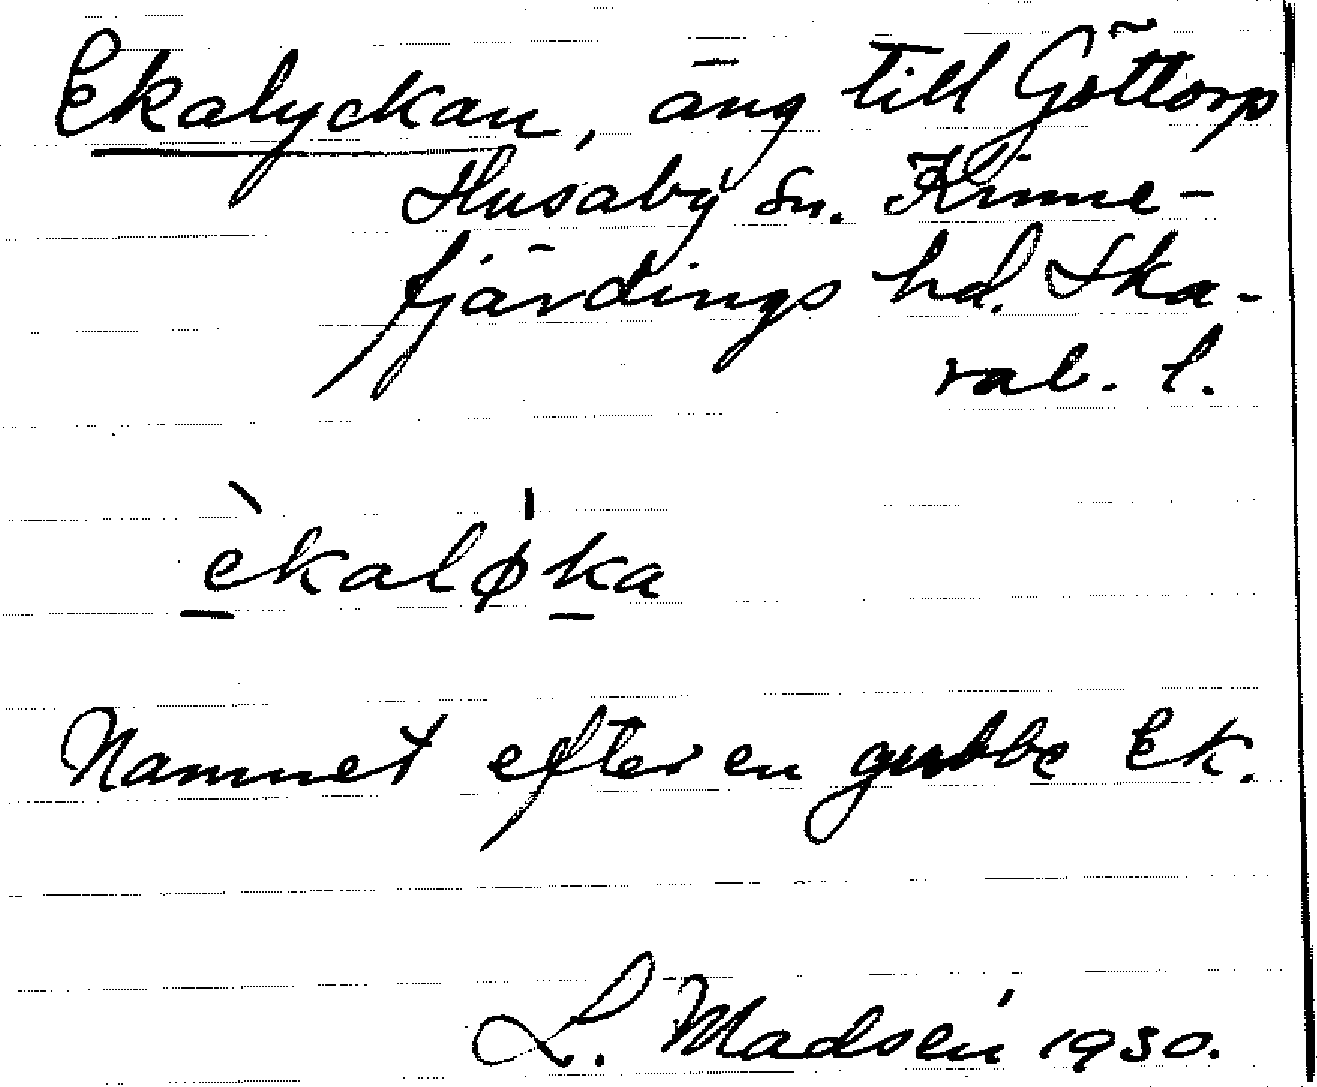 Ekalyckan, äng till Göttorp
Husaby sn. Kinne-
fjärdings hd. Ska-
rab. l.
èkalø̍ka
Namnet efter en gubbe Ek.
L. Madsén 1930.